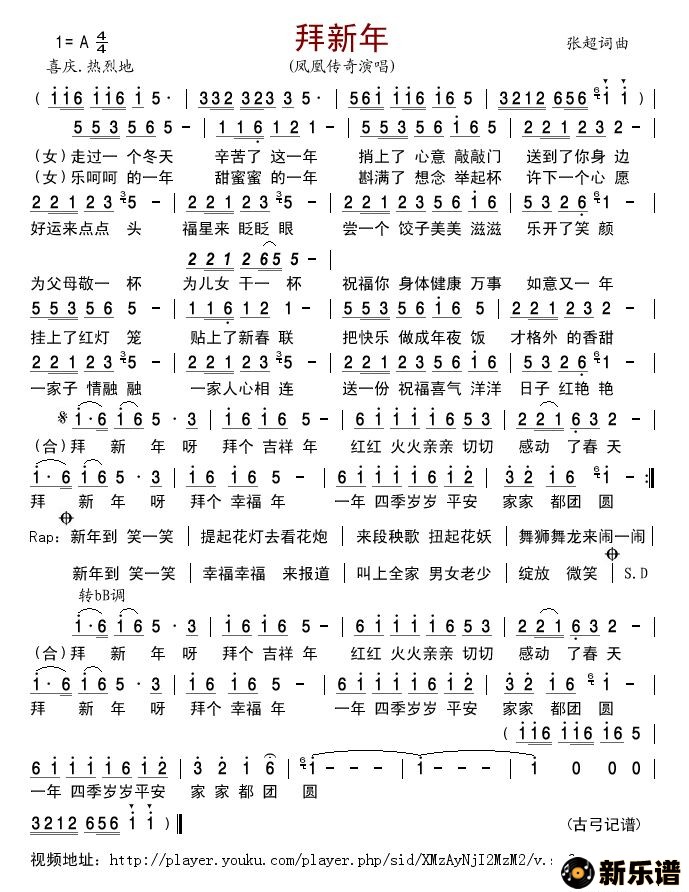 拜新年
1= A 4/4
张超词曲
喜庆.热烈地
(凤凰传奇演唱)
( i i 6 i i 6 i 5· | 3 3 2 3 2 3 5 - | 5 6 i i 6 i 5 - | 3 2 1 2 6 5 6 6 i i ) |
5 5 3 5 6 5 - | 1 1 6 1 2 1 - | 5 5 3 5 5 6 i 6 5 | 2 2 1 2 3 2 - |
(女)走过一 个冬天 辛苦了 这一年 捎上了 心意 敲敲门 送到了你身 边
(女)乐呵呵 的一年 甜蜜蜜 的一年 斟满了 想念 举起杯 许下一个心 愿
2 2 1 2 3 3 5 - | 2 2 1 2 3 3 5 - | 2 2 1 2 3 5 6 i 6 | 5 5 3 2 6 6 5 - |
好运来点点 头 福星来 眨眨 眼 尝一个 饺子美美 滋滋 乐开了笑 颜
2 2 1 2 6 5 5 - |
为父母敬一 杯 为儿女 干一 杯 祝福你 身体健康 万事 如意又一 年
5 5 3 5 6 5 - | 1 1 6 1 2 1 - | 5 5 3 5 6 i 6 5 | 2 2 1 2 3 2 - |
挂上了红灯 笼 贴上了新春 联 把快乐 做成年夜 饭 才格外 的香甜
2 2 1 2 3 3 5 - | 2 2 1 2 3 3 5 - | 2 2 1 2 3 5 6 i 6 | 5 5 3 2 6 6 i - |
一家子 情融 融 一家人心相 连 送一份 祝福喜气 洋洋 日子 红艳 艳
i· 6 i 6 5· 3 | i 6 i 6 5 - | 6 i i i i 6 5 3 | 2 2 1 6 3 2 - |
(合)拜 新 年 呀 拜个 吉祥 年 红红 火火亲亲 切切 感动 了春 天
i· 6 i 6 5· 3 | i 6 i 6 5 - | 6 i i i i 6 i 2 | 3 2 i 6 6 i - :||
拜 新 年 呀 拜个 幸福 年 一年 四季岁岁 平安 家家 都团 圆
Rap: 新年到 笑一笑 | 提起花灯去看花炮 | 来段秧歌 扭起花妖 | 舞狮舞龙来闹一闹 |
新年到 笑一笑 | 幸福幸福 来报道 | 叫上全家 男女老少 | 绽放 微笑 | S.D
转bB调
i· 6 i 6 5· 3 | i 6 i 6 5 - | 6 i i i i 6 5 3 | 2 2 1 6 3 2 - |
(合)拜 新 年 呀 拜个 吉祥 年 红红 火火亲亲 切切 感动 了春 天
i· 6 i 6 5· 3 | i 6 i 6 5 - | 6 i i i i 6 i 2 | 3 2 i 6 6 i - |
拜 新 年 呀 拜个 幸福 年 一年 四季岁岁 平安 家家 都团 圆
( i i 6 i i 6 i 6 5
6 i i i i 6 i 2 | 3 2 i 6 | 6 i - - - | i - - - | 1 0 0 0
一年 四季岁岁平安 家 家 都 团 圆
3 2 1 2 6 5 6 i i ) ||
(古弓记谱)
视频地址: http://player.youku.com/player.php/sid/XMzAyNjI2MzM2/v.s
新乐谱